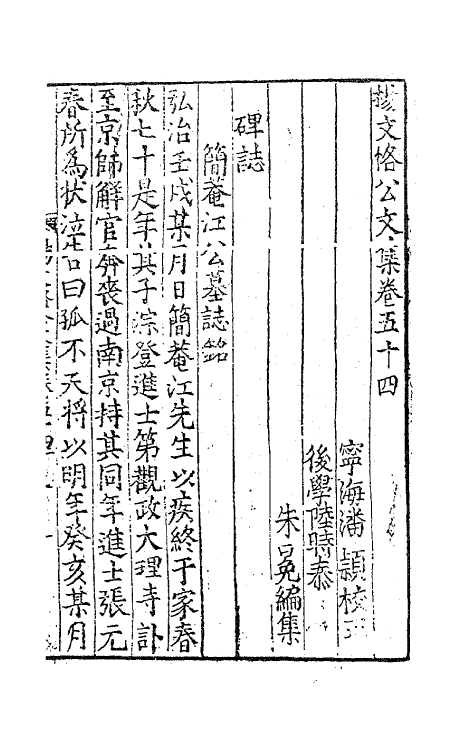 楊文恪公文集卷五十四
寧海潘頴校正
後學陸時泰
朱冕編集
碑誌
簡菴江公墓誌銘
弘治壬戌某月日簡菴江先生以疾終于家春
秋七十是年其子淙登進士第觀政大理寺訃
至京師解官奔喪過南京持其同年進士張元
春所為狀泣告曰孤不天將以明年癸亥某月